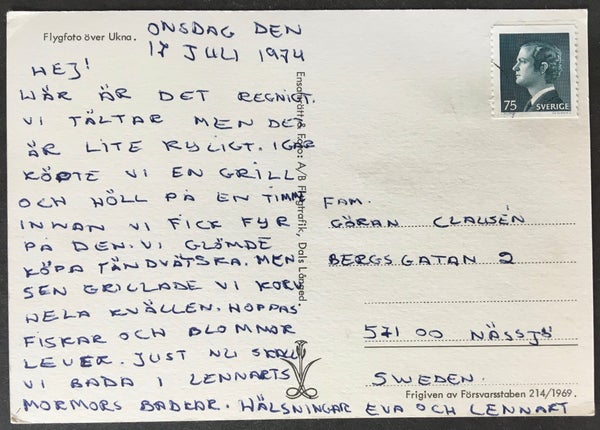 Flygfoto över Ukna.
ONSDAG DEN
17 JULI 1974
HEJ!
HÄR ÄR DET REGNIGT.
VI TÄLTAR MEN DET
ÄR LITE KYLIGT. IGÅR
KÖPTE VI EN GRILL
OCH HÖLL PÅ EN TIMMA
INNAN VI FICK FYR
PÅ DEN. VI GLÖMDE
KÖPA TÄNDVÄTSKA. MEN
SEN GRILLADE VI KORV
HELA KVÄLLEN. HOPPAS
FISKAR OCH BLOMMOR
LEVER. JUST NU SKALL
VI BADA I LENNARTS
MORMORS BADKAR. HÄLSNINGAR EVA OCH LENNART
Ensamrätt & Foto: A/B Flygtrafik, Dals Långed.
75 SVERIGE
FAM.
GÖRAN CLAUSÉN
BERGSGATAN 2
571 00 NÄSSJÖ
SWEDEN.
Frigiven av Försvarsstaben 214/1969.